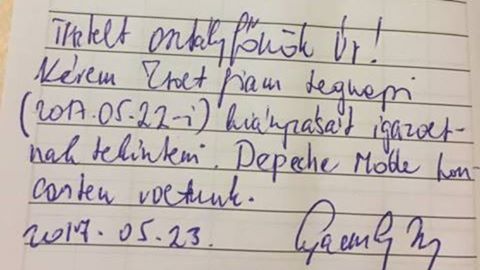 Tisztelt osztályfőnök Úr!
Kérem Zsolt fiam tegnapi
(2017.05.22-i) hiányzásait igazolt-
nak tekinteni. Depeche Mode kon-
certen voltunk.
2017. 05. 23.